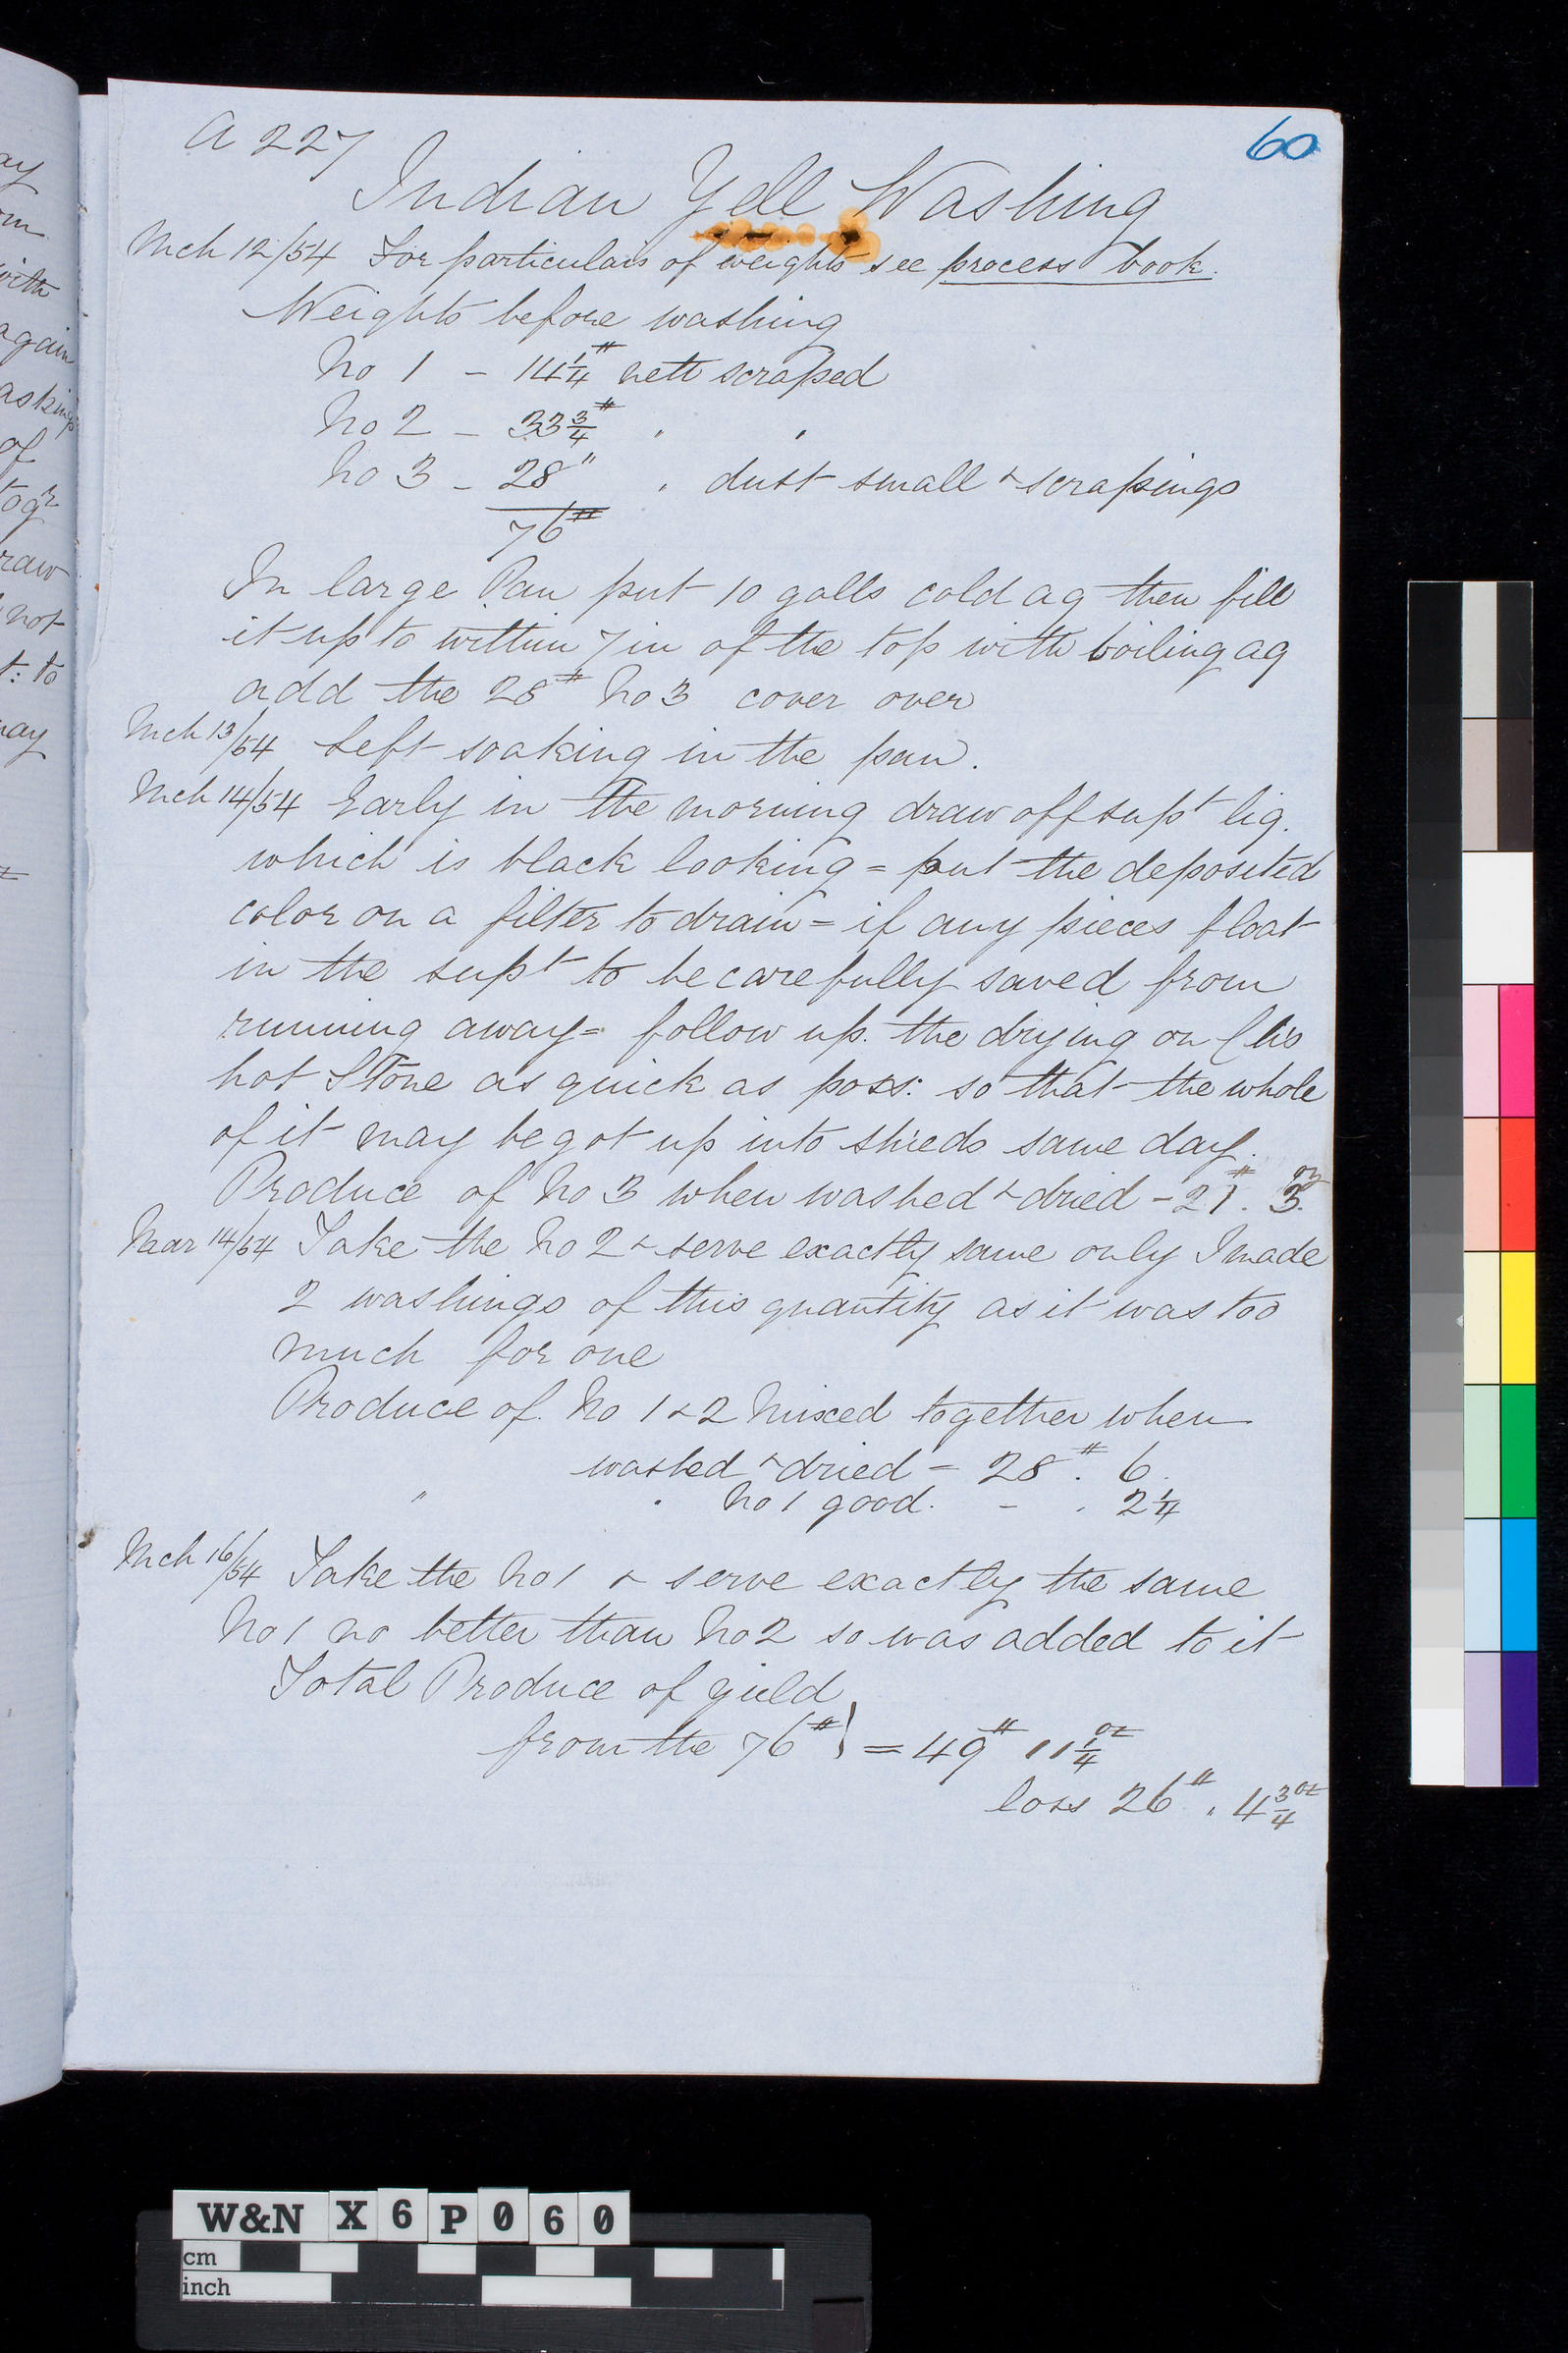 A 227
60
Indian Yell Washing
Mch 12/54 For particulars of weights see process book.
Weights before washing
No 1 - 14 1/4 # nett scraped
No 2 - 33 3/4 # " "
No 3 - 28 " " dust small & scrapings
76 #
In large Pan put 10 galls cold aq then fill
it up to within 7 in of the top with boiling aq
add the 28 # No 3 cover over
Mch 13/54 Left soaking in the pan.
Mch 14/54 Early in the morning draw off supt liq.
which is black looking = put the deposited
color on a filter to drain = if any pieces float
in the supt to be carefully saved from
running away = follow up the drying on
hot Stone as quick as poss: so that the whole
of it may be got up into shreds same day.
Produce of No 3 when washed & dried - 21 #. 3 oz
Mar 14/54 Take the No 2 & serve exactly same only I made
2 washings of this quantity as it was too
much for one
Produce of No 1 & 2 Mixed together when
washed & dried = 28 #. 6.
" " No 1 good. - . 2 1/4
Mch 16/54 Take the No 1 & serve exactly the same
No 1 no better than No 2 so was added to it
Total Produce of yield
from the 76 # } = 49 # 11 1/4 oz
loss 26 #. 4 3/4 oz
ay
om
with
again
asking
of
togr
raw
not
t: to
may
W&N X6P060
cm
inch